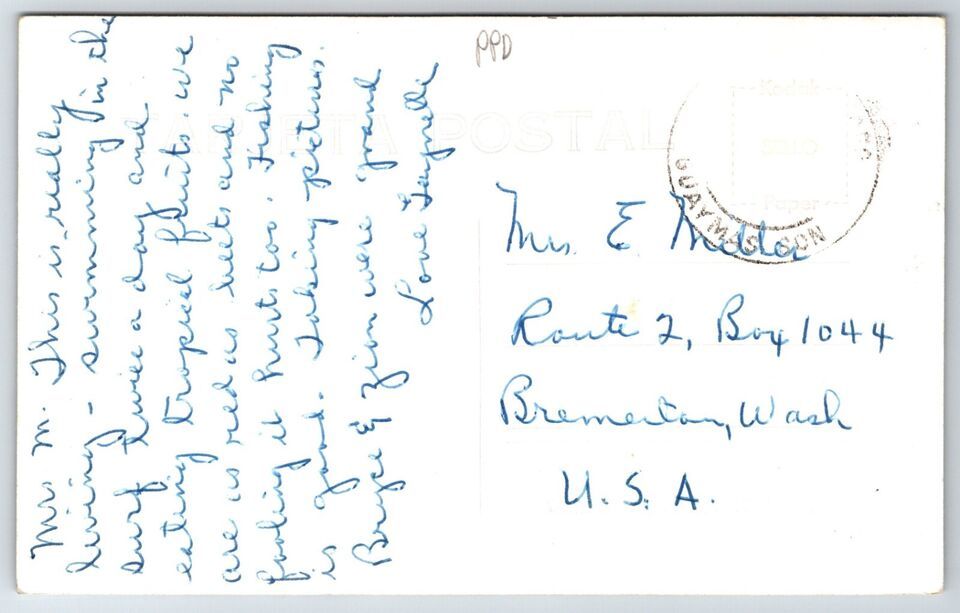 Mrs. M. This is really
living - swimming in the
surf twice a day and
eating tropical fruits. We
are as red as beets and no
fooling it hurts too. Fishing
is good. Taking pictures.
Bryce & Zion were grand
Love
PPD
TARJETA POSTAL
Kodak
Paper
GUAYMAS, SON
Mrs. E Miller
Route 2, Box 1044
Bremerton, Wash
U. S. A.